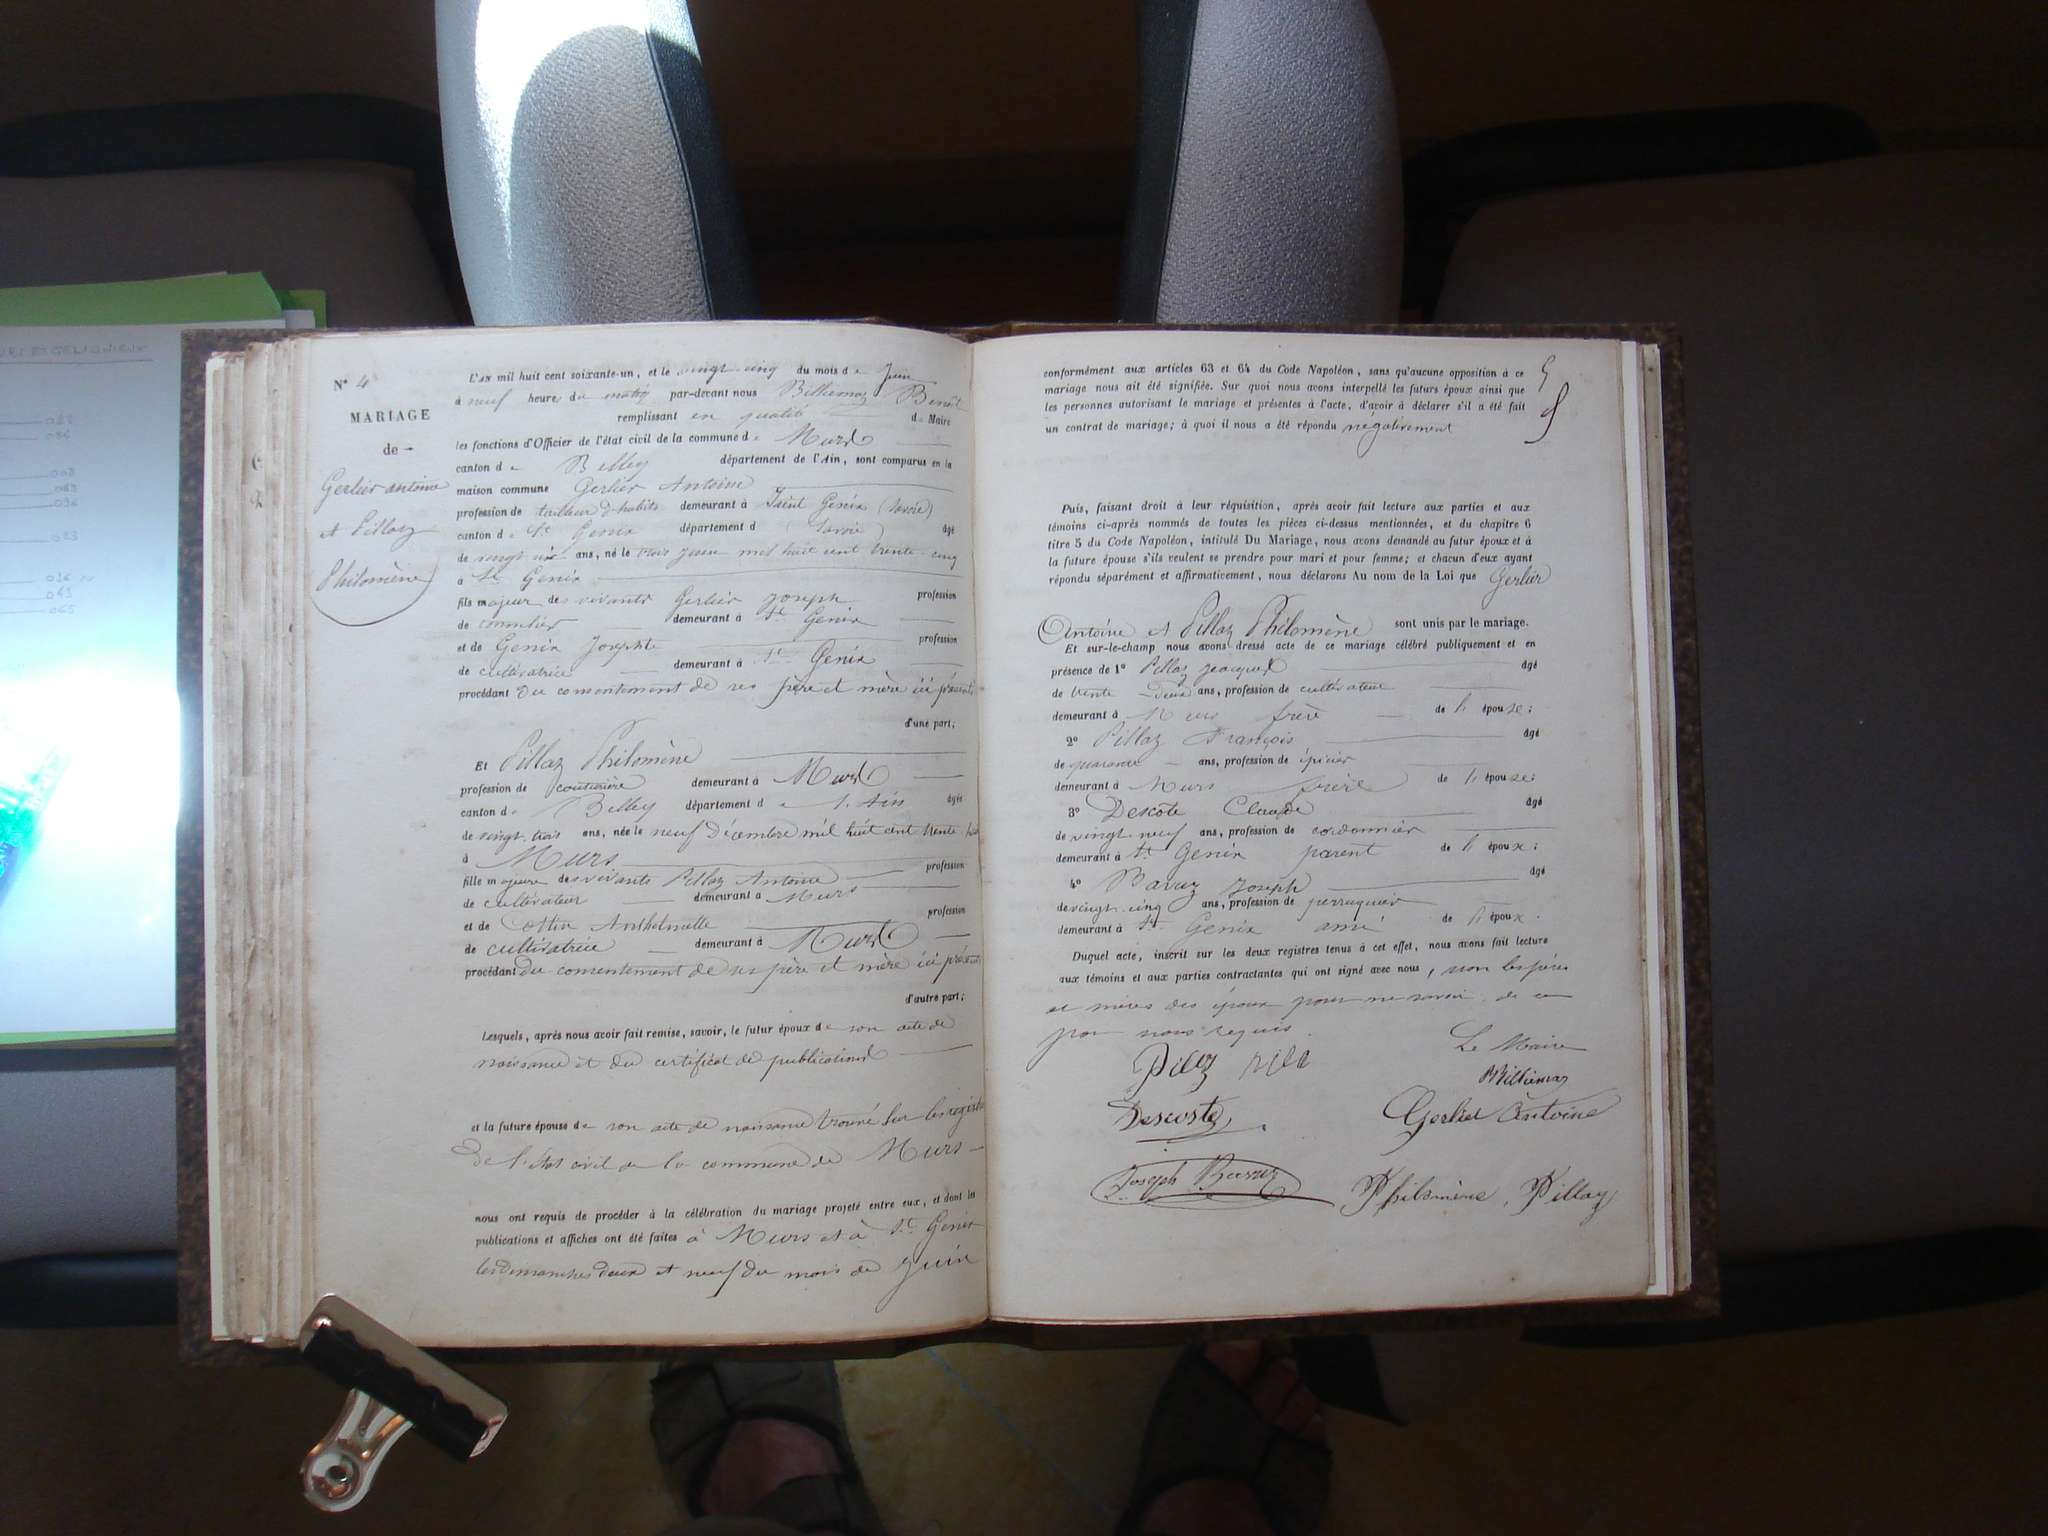 N° 4
MARIAGE
de
Gerlier antoine
et Pillaz
Philomène
L'AN mil huit cent soixante-un, et le vingt-cinq du mois de Juin
à neuf heure du matin par-devant nous Billiemaz Benoît
remplissant en qualité de Maire
les fonctions d'Officier de l'état civil de la commune de Murs
canton de Belley département de l'Ain, sont comparus en la
maison commune Gerlier Antoine
profession de tailleur d'habits demeurant à Saint Genix (Savoie)
canton de St Genix département d (Savoie) âgé
de vingt six ans, né le trois juin mil huit cent trente-cinq
à St Genix
fils majeur des vivants Gerlier Joseph profession
de demeurant à St Genix
et de Genix Josephte profession
de cultivatrice demeurant à St Genix
procédant du consentement de ses père et mère ici présents
d'une part;
Et Pillaz Philomène
profession de couturière demeurant à Murs
canton de Belley département de l'Ain âgée
de vingt-trois ans, née le neuf Décembre mil huit cent trente
à Murs
fille majeure des vivants Pillaz Antoine profession
de cultivateur demeurant à Murs
et de Cottin Anthelmette profession
de cultivatrice demeurant à Murs
procédant du consentement de ses père et mère ici présents
d'autre part;
Lesquels, après nous avoir fait remise, savoir, le futur époux de son acte de
naissance et du certificat de publications
et la future épouse de son acte de naissance trouvé sur les registres
de l'état civil de la commune de Murs
nous ont requis de procéder à la célébration du mariage projeté entre eux, et dont les
publications et affiches ont été faites à Murs et à St Genix
les dimanches deux et neuf du mois de Juin
conformément aux articles 63 et 64 du Code Napoléon, sans qu'aucune opposition à ce
mariage nous ait été signifiée. Sur quoi nous avons interpellé les futurs époux ainsi que
les personnes autorisant le mariage et présentes à l'acte, d'avoir à déclarer s'il a été fait
un contrat de mariage; à quoi il nous a été répondu négativement
5
Puis, faisant droit à leur réquisition, après avoir fait lecture aux parties et aux
témoins ci-après nommés de toutes les pièces ci-dessus mentionnées, et du chapitre 6
titre 5 du Code Napoléon, intitulé Du Mariage, nous avons demandé au futur époux et à
la future épouse s'ils veulent se prendre pour mari et pour femme; et chacun d'eux ayant
répondu séparément et affirmativement, nous déclarons Au nom de la Loi que Gerlier
Antoine et Pillaz Philomène sont unis par le mariage.
Et sur-le-champ nous avons dressé acte de ce mariage célébré publiquement et en
présence de 1° Pillaz Jacques âgé
de trente deux ans, profession de cultivateur
demeurant à Murs frère de l'épouse;
2° Pillaz François âgé
de quarante ans, profession de épicier
demeurant à Murs frère de l'épouse;
3° Descote Claude âgé
de vingt neuf ans, profession de cordonnier
demeurant à St Genix parent de l'époux;
4° Joseph âgé
de vingt-cinq ans, profession de perruquier
demeurant à St Genix ami de l'époux.
Duquel acte, inscrit sur les deux registres tenus à cet effet, nous avons fait lecture
aux témoins et aux parties contractantes qui ont signé avec nous, non les pères
et mères des époux pour ne savoir, de ce
par nous requis.
Le Maire
Billiemaz
Descoste
Gerlier Antoine
Joseph
Philomène Pillaz